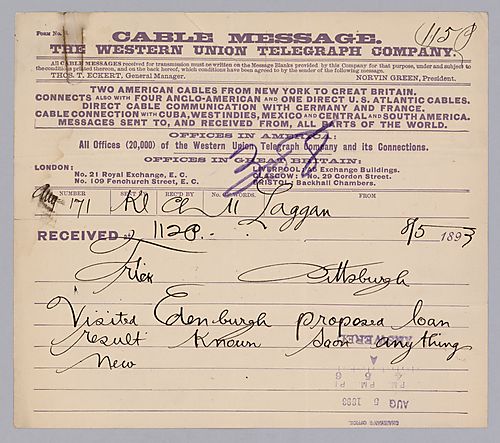 Form No.
CABLE MESSAGE.
THE WESTERN UNION TELEGRAPH COMPANY.
All CABLE MESSAGES received for transmission must be written on the Message Blanks provided by this Company for that purpose, under and subject to
the conditions printed thereon, and on the back hereof, which conditions have been agreed to by the sender of the following message.
THOS. T. ECKERT, General Manager. NORVIN GREEN, President.
TWO AMERICAN CABLES FROM NEW YORK TO GREAT BRITAIN.
CONNECTS ALSO WITH FOUR ANGLO-AMERICAN AND ONE DIRECT U.S. ATLANTIC CABLES.
DIRECT CABLE COMMUNICATION WITH GERMANY AND FRANCE.
CABLE CONNECTION WITH CUBA, WEST INDIES, MEXICO AND CENTRAL AND SOUTH AMERICA.
MESSAGES SENT TO, AND RECEIVED FROM, ALL PARTS OF THE WORLD.
OFFICES IN AMERICA:
All Offices (20,000) of the Western Union Telegraph Company and its Connections.
OFFICES IN GREAT BRITAIN:
LONDON:
No. 21 Royal Exchange, E. C.
No. 109 Fenchurch Street, E. C.
LIVERPOOL: A6 Exchange Buildings.
GLASGOW: No. 29 Gordon Street.
BRISTOL: Backhall Chambers.
NUMBER SENT BY REC'D BY No. OF WORDS. FROM
171 Laggan
RECEIVED at 112P. 8/5 1893
Frick Pittsburgh
Visited Edenburgh proposed loan
result known soon anything
new
AUG 5 1893